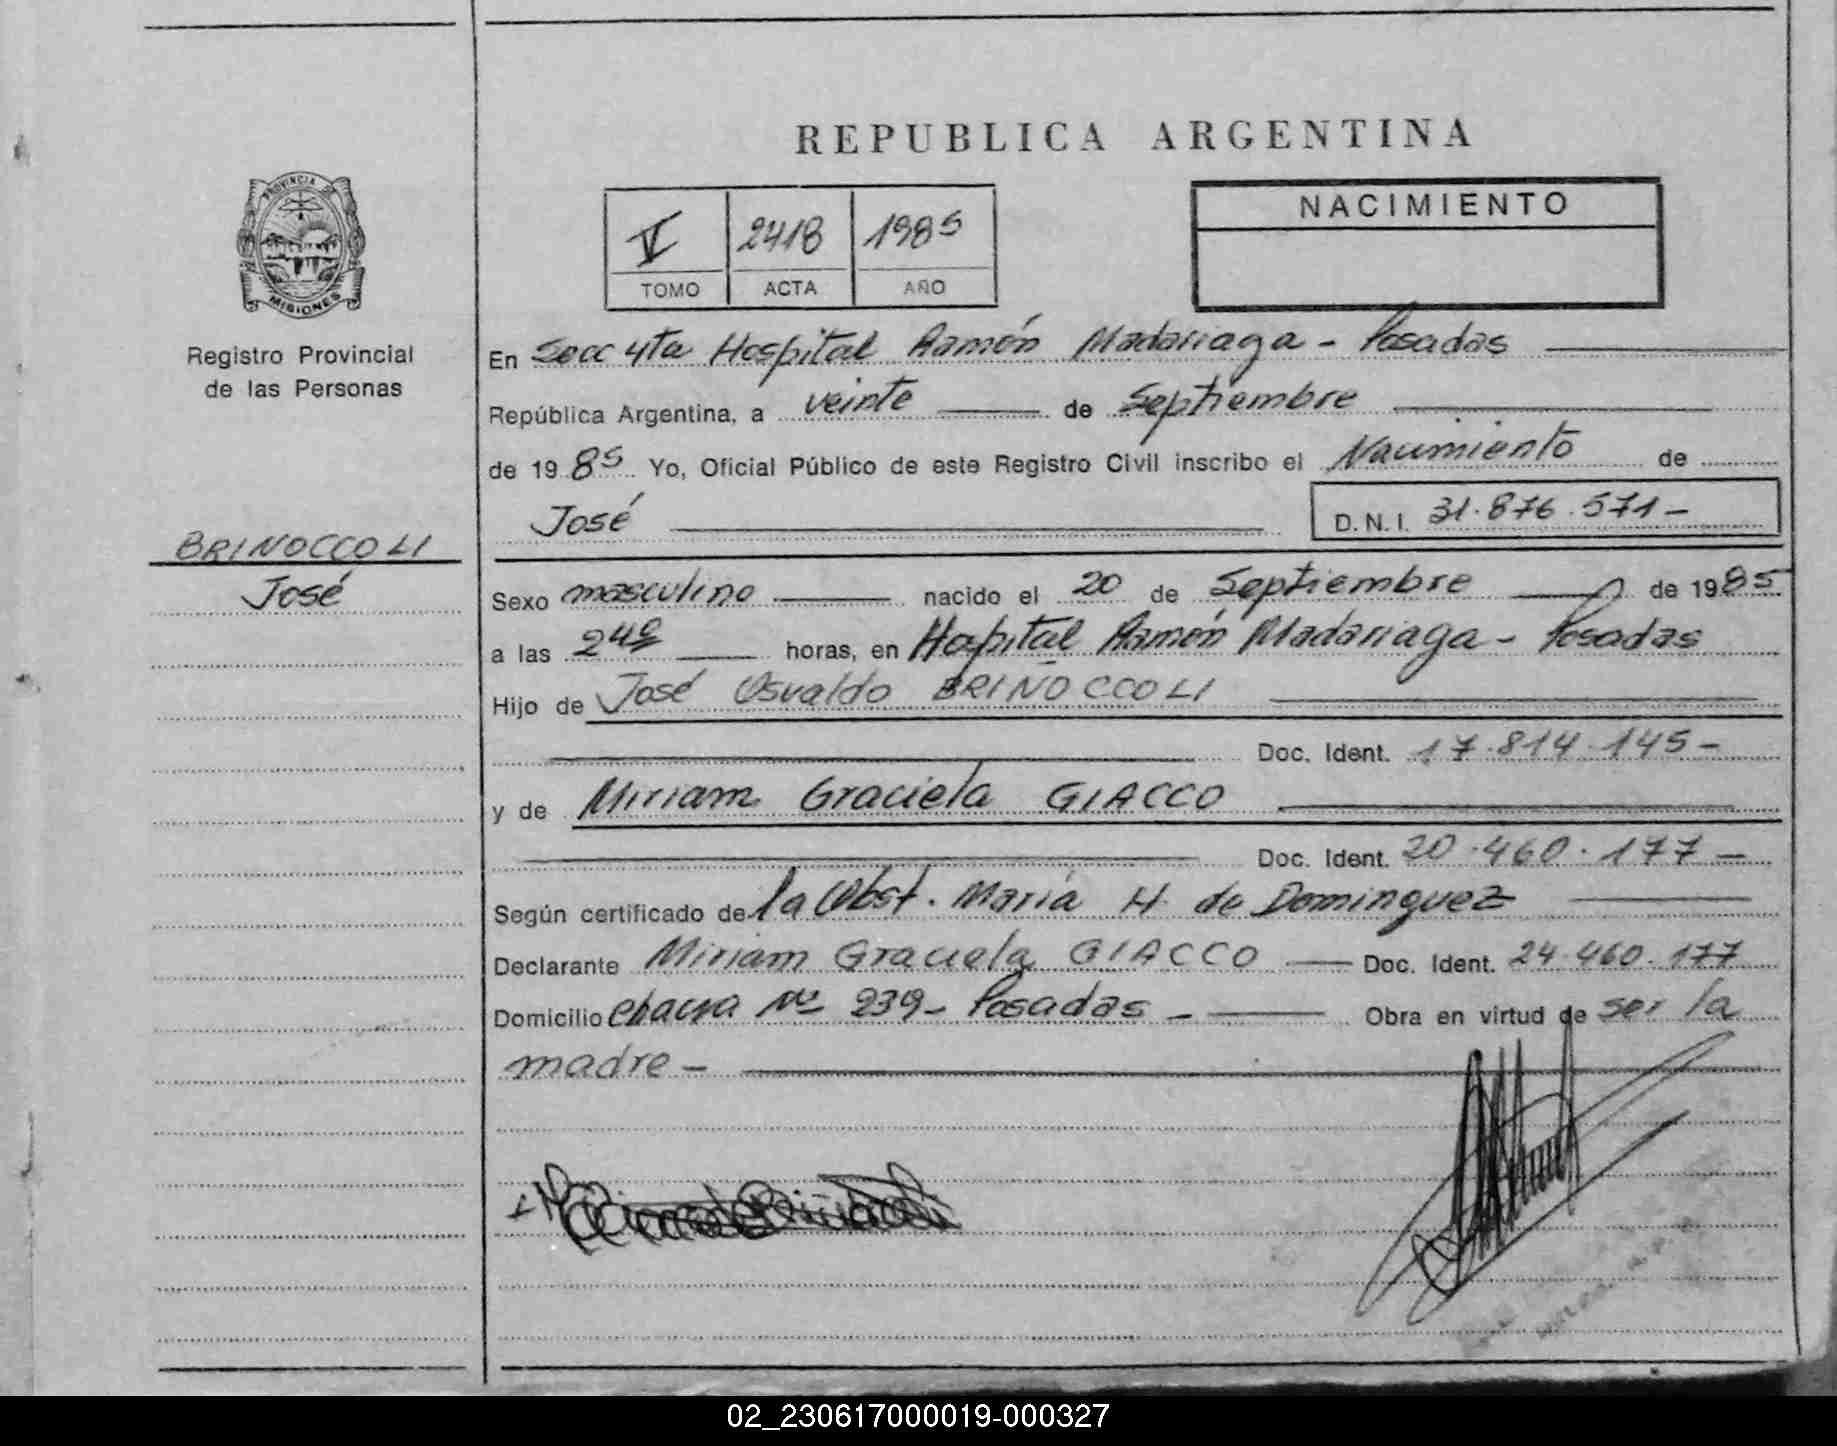 REPUBLICA ARGENTINA
PROVINCIA DE
MISIONES
Registro Provincial
de las Personas
BRINOCCOLI
José
V 2418 1985
TOMO ACTA AÑO
NACIMIENTO
En Secc 4ta Hospital Ramón Madariaga - Posadas
República Argentina, a veinte de Septiembre
de 1985 Yo, Oficial Público de este Registro Civil inscribo el Nacimiento de
José D.N.I. 31.876.571-
Sexo masculino nacido el 20 de Septiembre de 1985
a las 24 horas, en Hospital Ramón Madariaga - Posadas
Hijo de José Osvaldo BRINOCCOLI
Doc. Ident. 17.814.145-
y de Miriam Graciela GIACCO
Doc. Ident. 20.460.177-
Según certificado de la Obst. Maria H. de Dominguez
Declarante Miriam Graciela GIACCO Doc. Ident. 24.460.177
Domicilio chacra Nº 239- Posadas - Obra en virtud de ser la
madre -
02_230617000019-000327